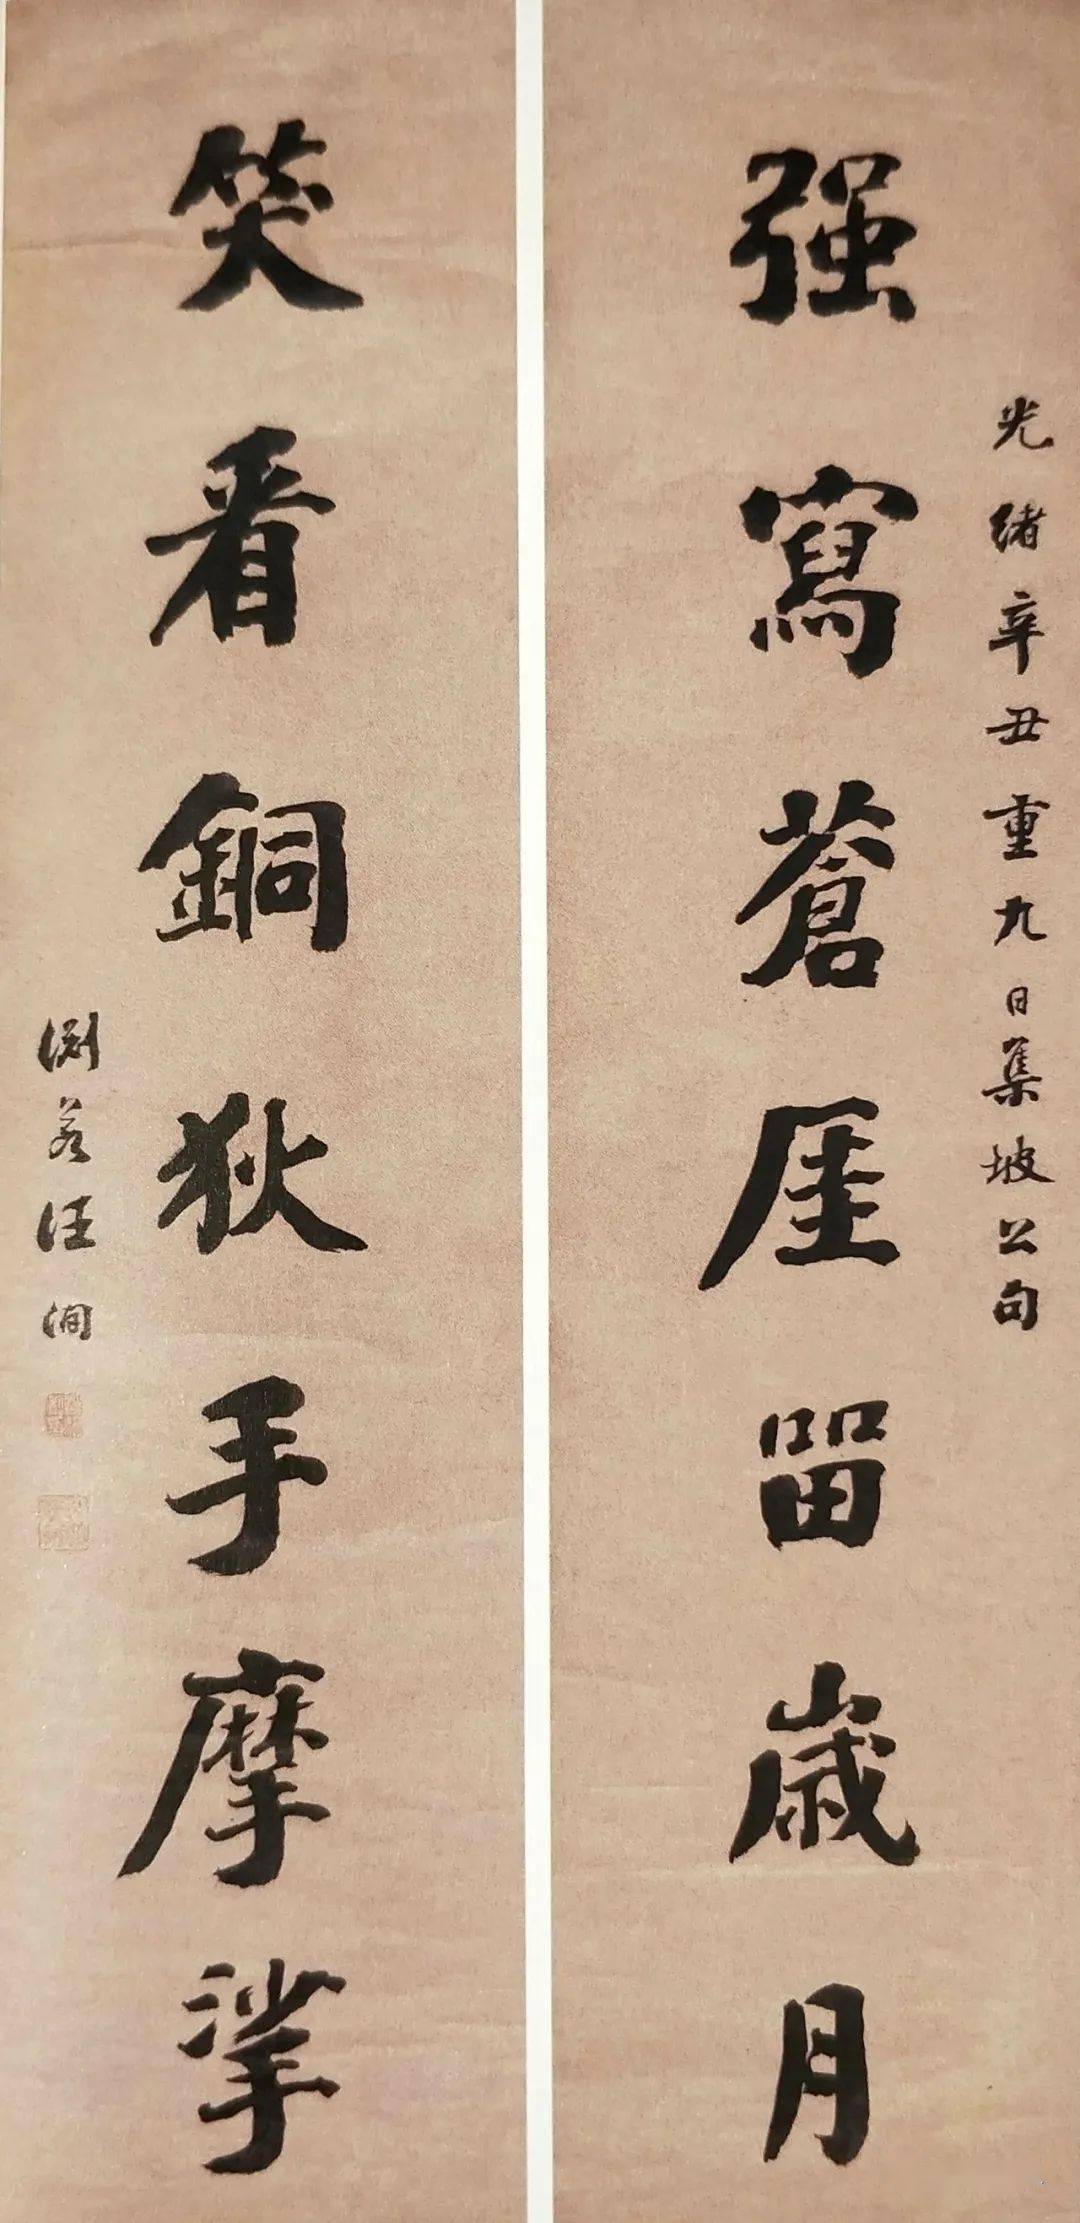 光緒辛丑重九日集坡公句
强寫蒼厓留歲月
笑看銅狄手摩挲
渊若汪洵